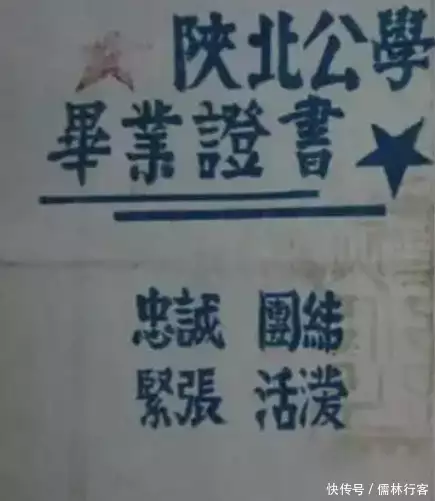 陝北公學
畢業證書
忠誠 團結
緊張 活潑
快传号／儒林行客